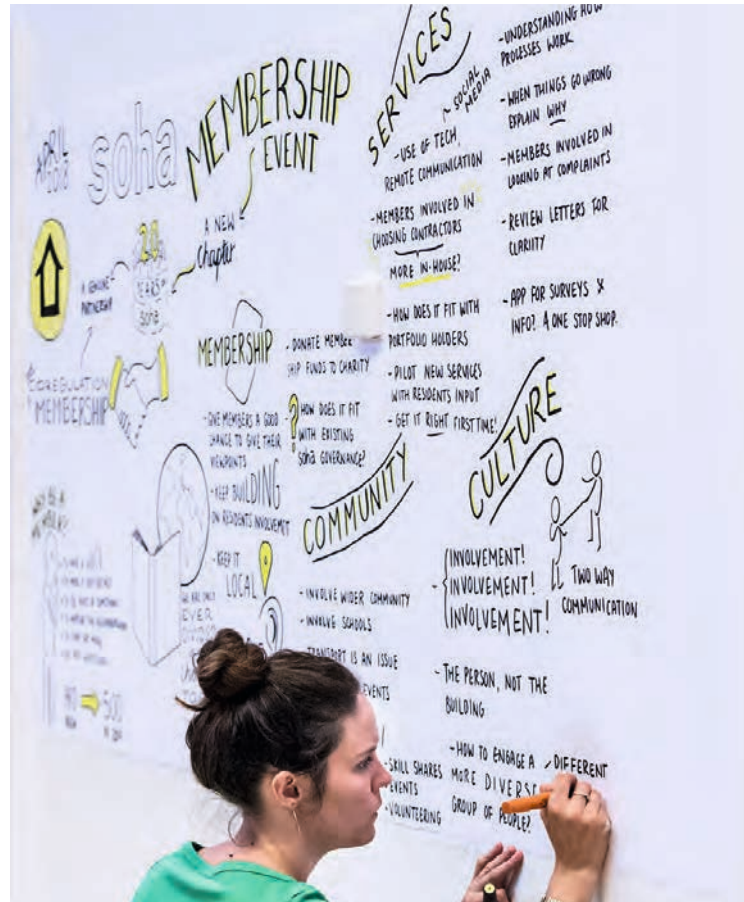 APRIL
2018
soha
MEMBERSHIP
EVENT
A NEW
chapter
20
YEARS
soha
A GENUINE
PARTNERSHIP
COREGULATION
MEMBERSHIP
MEMBERSHIP
- GIVE MEMBERS A GOOD
CHANCE TO GIVE THEIR
VIEWPOINTS
- KEEP BUILDING
ON RESIDENTS INVOLVEMENT
- KEEP IT
LOCAL
WE ARE ONLY
EVER
- DONATE MEMBER
SHIP FUNDS TO CHARITY
? HOW DOES IT FIT
WITH EXISTING
soha GOVERNANCE?
SERVICES
~ SOCIAL
MEDIA
- USE OF TECH,
REMOTE COMMUNICATION
- MEMBERS INVOLVED IN
CHOOSING CONTRACTORS
MORE IN-HOUSE?
- HOW DOES IT FIT WITH
PORTFOLIO HOLDERS
- PILOT NEW SERVICES
WITH RESIDENTS INPUT
- GET IT RIGHT FIRST TIME!
- UNDERSTANDING HOW
PROCESSES WORK
- WHEN THINGS GO WRONG
EXPLAIN WHY
- MEMBERS INVOLVED IN
LOOKING AT COMPLAINTS
- REVIEW LETTERS FOR
CLARIITY
- APP FOR SURVEYS &
INFO? A ONE STOP SHOP.
COMMUNITY
- INVOLVE WIDER COMMUNITY
- INVOLVE SCHOOLS
TRANSPORT IS AN ISSUE
EVENTS
- SKILL SHARES
EVENTS
- VOLUNTEERING
CULTURE
- INVOLVEMENT!
INVOLVEMENT!
INVOLVEMENT!
TWO WAY
COMMUNICATION
- THE PERSON, NOT THE
BUILDING
- HOW TO ENGAGE A
MORE DIVERSE
GROUP OF PEOPLE?
DIFFERENT
500